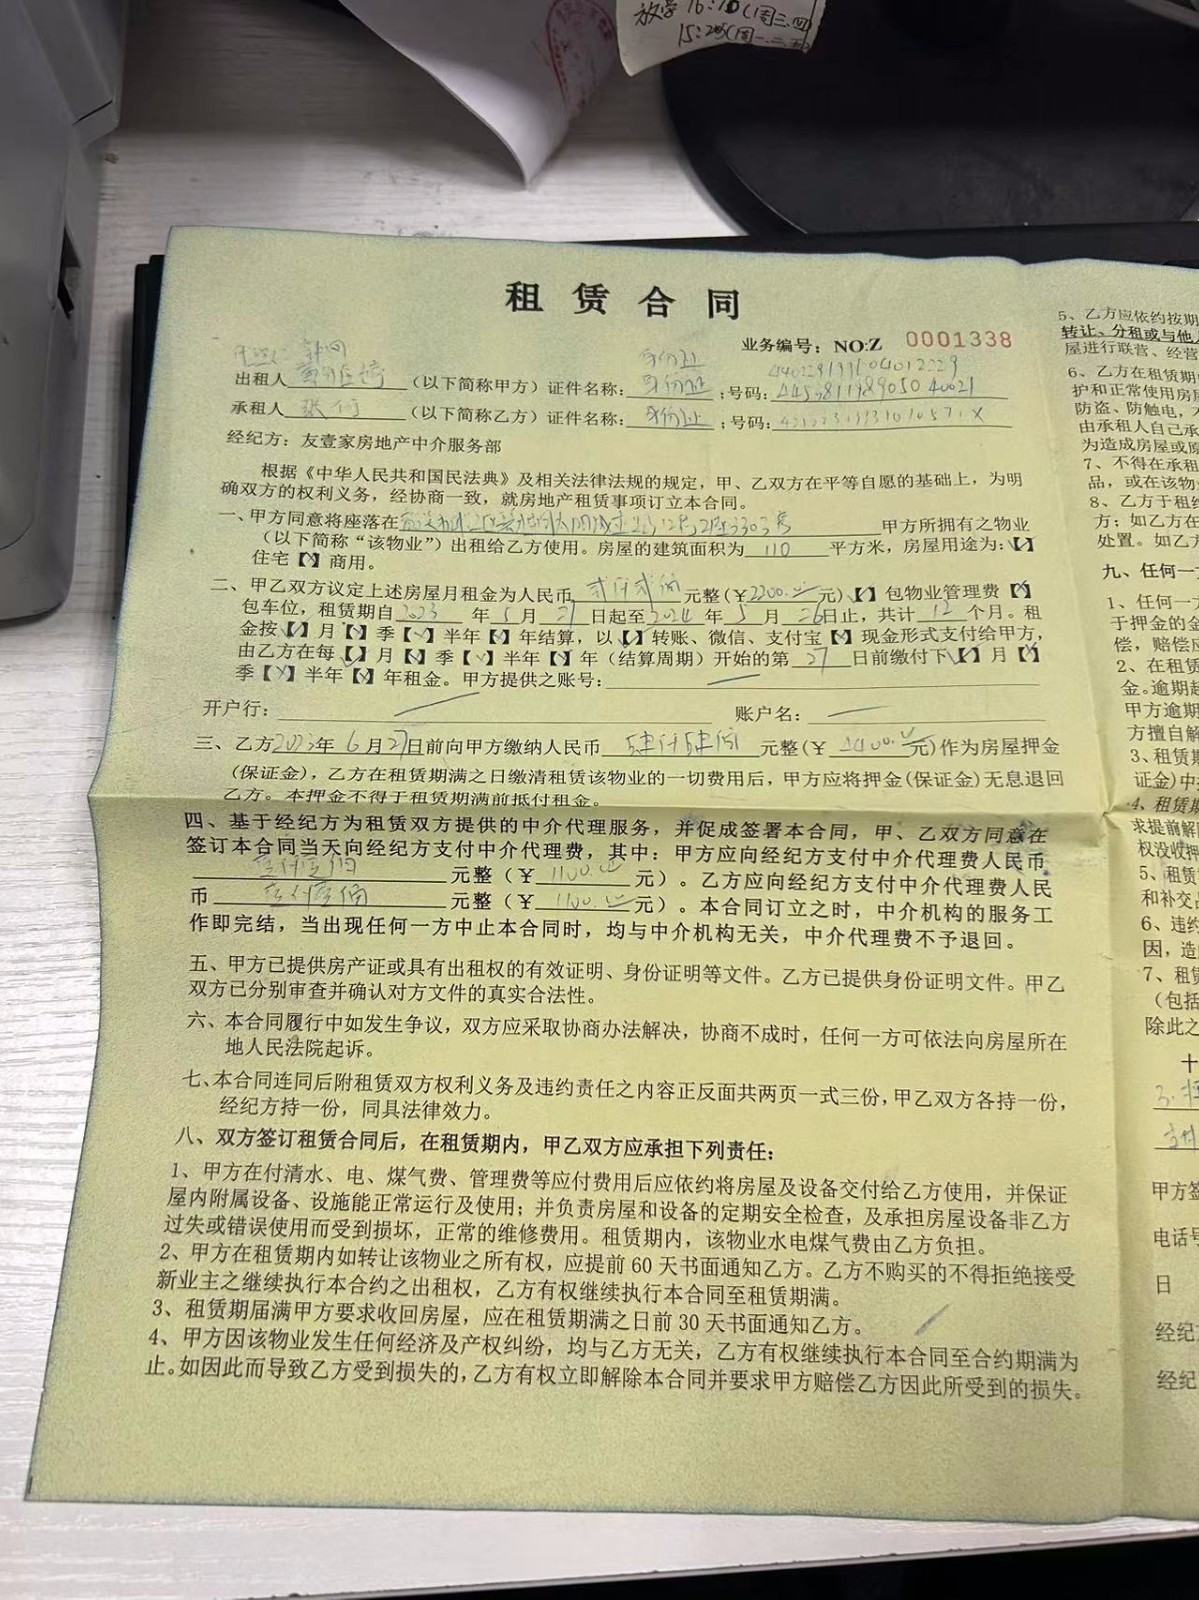 放学 16:10(周三.四
15:25(周一.二.五)
租赁合同
业务编号：NO:Z 0001338
身份证 440229199104012229
出租人（以下简称甲方）证件名称：身份证；号码：
承租人（以下简称乙方）证件名称：身份证；号码：
经纪方：友壹家房地产中介服务部
根据《中华人民共和国民法典》及相关法律法规的规定，甲、乙双方在平等自愿的基础上，为明
确双方的权利义务，经协商一致，就房地产租赁事项订立本合同。
一、甲方同意将座落在 甲方所拥有之物业
（以下简称“该物业”）出租给乙方使用。房屋的建筑面积为 110 平方米，房屋用途为：【√】
住宅【×】商用。
二、甲乙双方议定上述房屋月租金为人民币 贰仟贰佰 元整（¥2200.00元）、【√】包物业管理费【×】
包车位，租赁期自2023年5月27日起至2024年5月26日止，共计12个月。租
金按【√】月【×】季【×】半年【×】年结算，以【√】转账、微信、支付宝【×】现金形式支付给甲方，
由乙方在每【√】月【×】季【×】半年【×】年（结算周期）开始的第27日前缴付下【√】月【×】
季【×】半年【×】年租金。甲方提供之账号：
开户行： 账户名：
三、乙方2023年6月27日前向甲方缴纳人民币 肆仟肆佰 元整（¥4400.00元）作为房屋押金
（保证金），乙方在租赁期满之日缴清租赁该物业的一切费用后，甲方应将押金（保证金）无息退回
乙方。本押金不得于租赁期满前抵付租金。
四、基于经纪方为租赁双方提供的中介代理服务，并促成签署本合同，甲、乙双方同意在
签订本合同当天向经纪方支付中介代理费，其中：甲方应向经纪方支付中介代理费人民币
壹仟壹佰 元整（¥1100.00元）。乙方应向经纪方支付中介代理费人民
币 壹仟壹佰 元整（¥1100.00元）。本合同订立之时，中介机构的服务工
作即完结，当出现任何一方中止本合同时，均与中介机构无关，中介代理费不予退回。
五、甲方已提供房产证或具有出租权的有效证明、身份证明等文件。乙方已提供身份证明文件。甲乙
双方已分别审查并确认对方文件的真实合法性。
六、本合同履行中如发生争议，双方应采取协商办法解决，协商不成时，任何一方可依法向房屋所在
地人民法院起诉。
七、本合同连同后附租赁双方权利义务及违约责任之内容正反面共两页一式三份，甲乙双方各持一份，
经纪方持一份，同具法律效力。
八、双方签订租赁合同后，在租赁期内，甲乙双方应承担下列责任：
1、甲方在付清水、电、煤气费、管理费等应付费用后应依约将房屋及设备交付给乙方使用，并保证
屋内附属设备、设施能正常运行及使用；并负责房屋和设备的定期安全检查，及承担房屋设备非乙方
过失或错误使用而受到损坏，正常的维修费用。租赁期内，该物业水电煤气费由乙方负担。
2、甲方在租赁期内如转让该物业之所有权，应提前60天书面通知乙方。乙方不购买的不得拒绝接受
新业主之继续执行本合约之出租权，乙方有权继续执行本合同至租赁期满。
3、租赁期届满甲方要求收回房屋，应在租赁期满之日前30天书面通知乙方。
4、甲方因该物业发生任何经济及产权纠纷，均与乙方无关，乙方有权继续执行本合同至合约期满为
止。如因此而导致乙方受到损失的，乙方有权立即解除本合同并要求甲方赔偿乙方因此所受到的损失。
5、乙方应依约按期
转让、分租或与他人
屋进行联营、经营
6、乙方在租赁期
护和正常使用房屋
防盗、防触电，
由承租人自己承
为造成房屋或原
7、不得在承租
品，或在该物
8、乙方于租约
方；如乙方在
处置。如乙方
九、任何一方
1、任何一方
于押金的金
偿，赔偿应
2、在租赁
金。逾期超
甲方逾期
方擅自解
3、租赁期
证金）中
4、租赁期
求提前解
权没收押
5、租赁
和补交
6、违约
因，造
7、租赁
（包括
除此之
十
甲方签
电话号
日
经纪
经纪